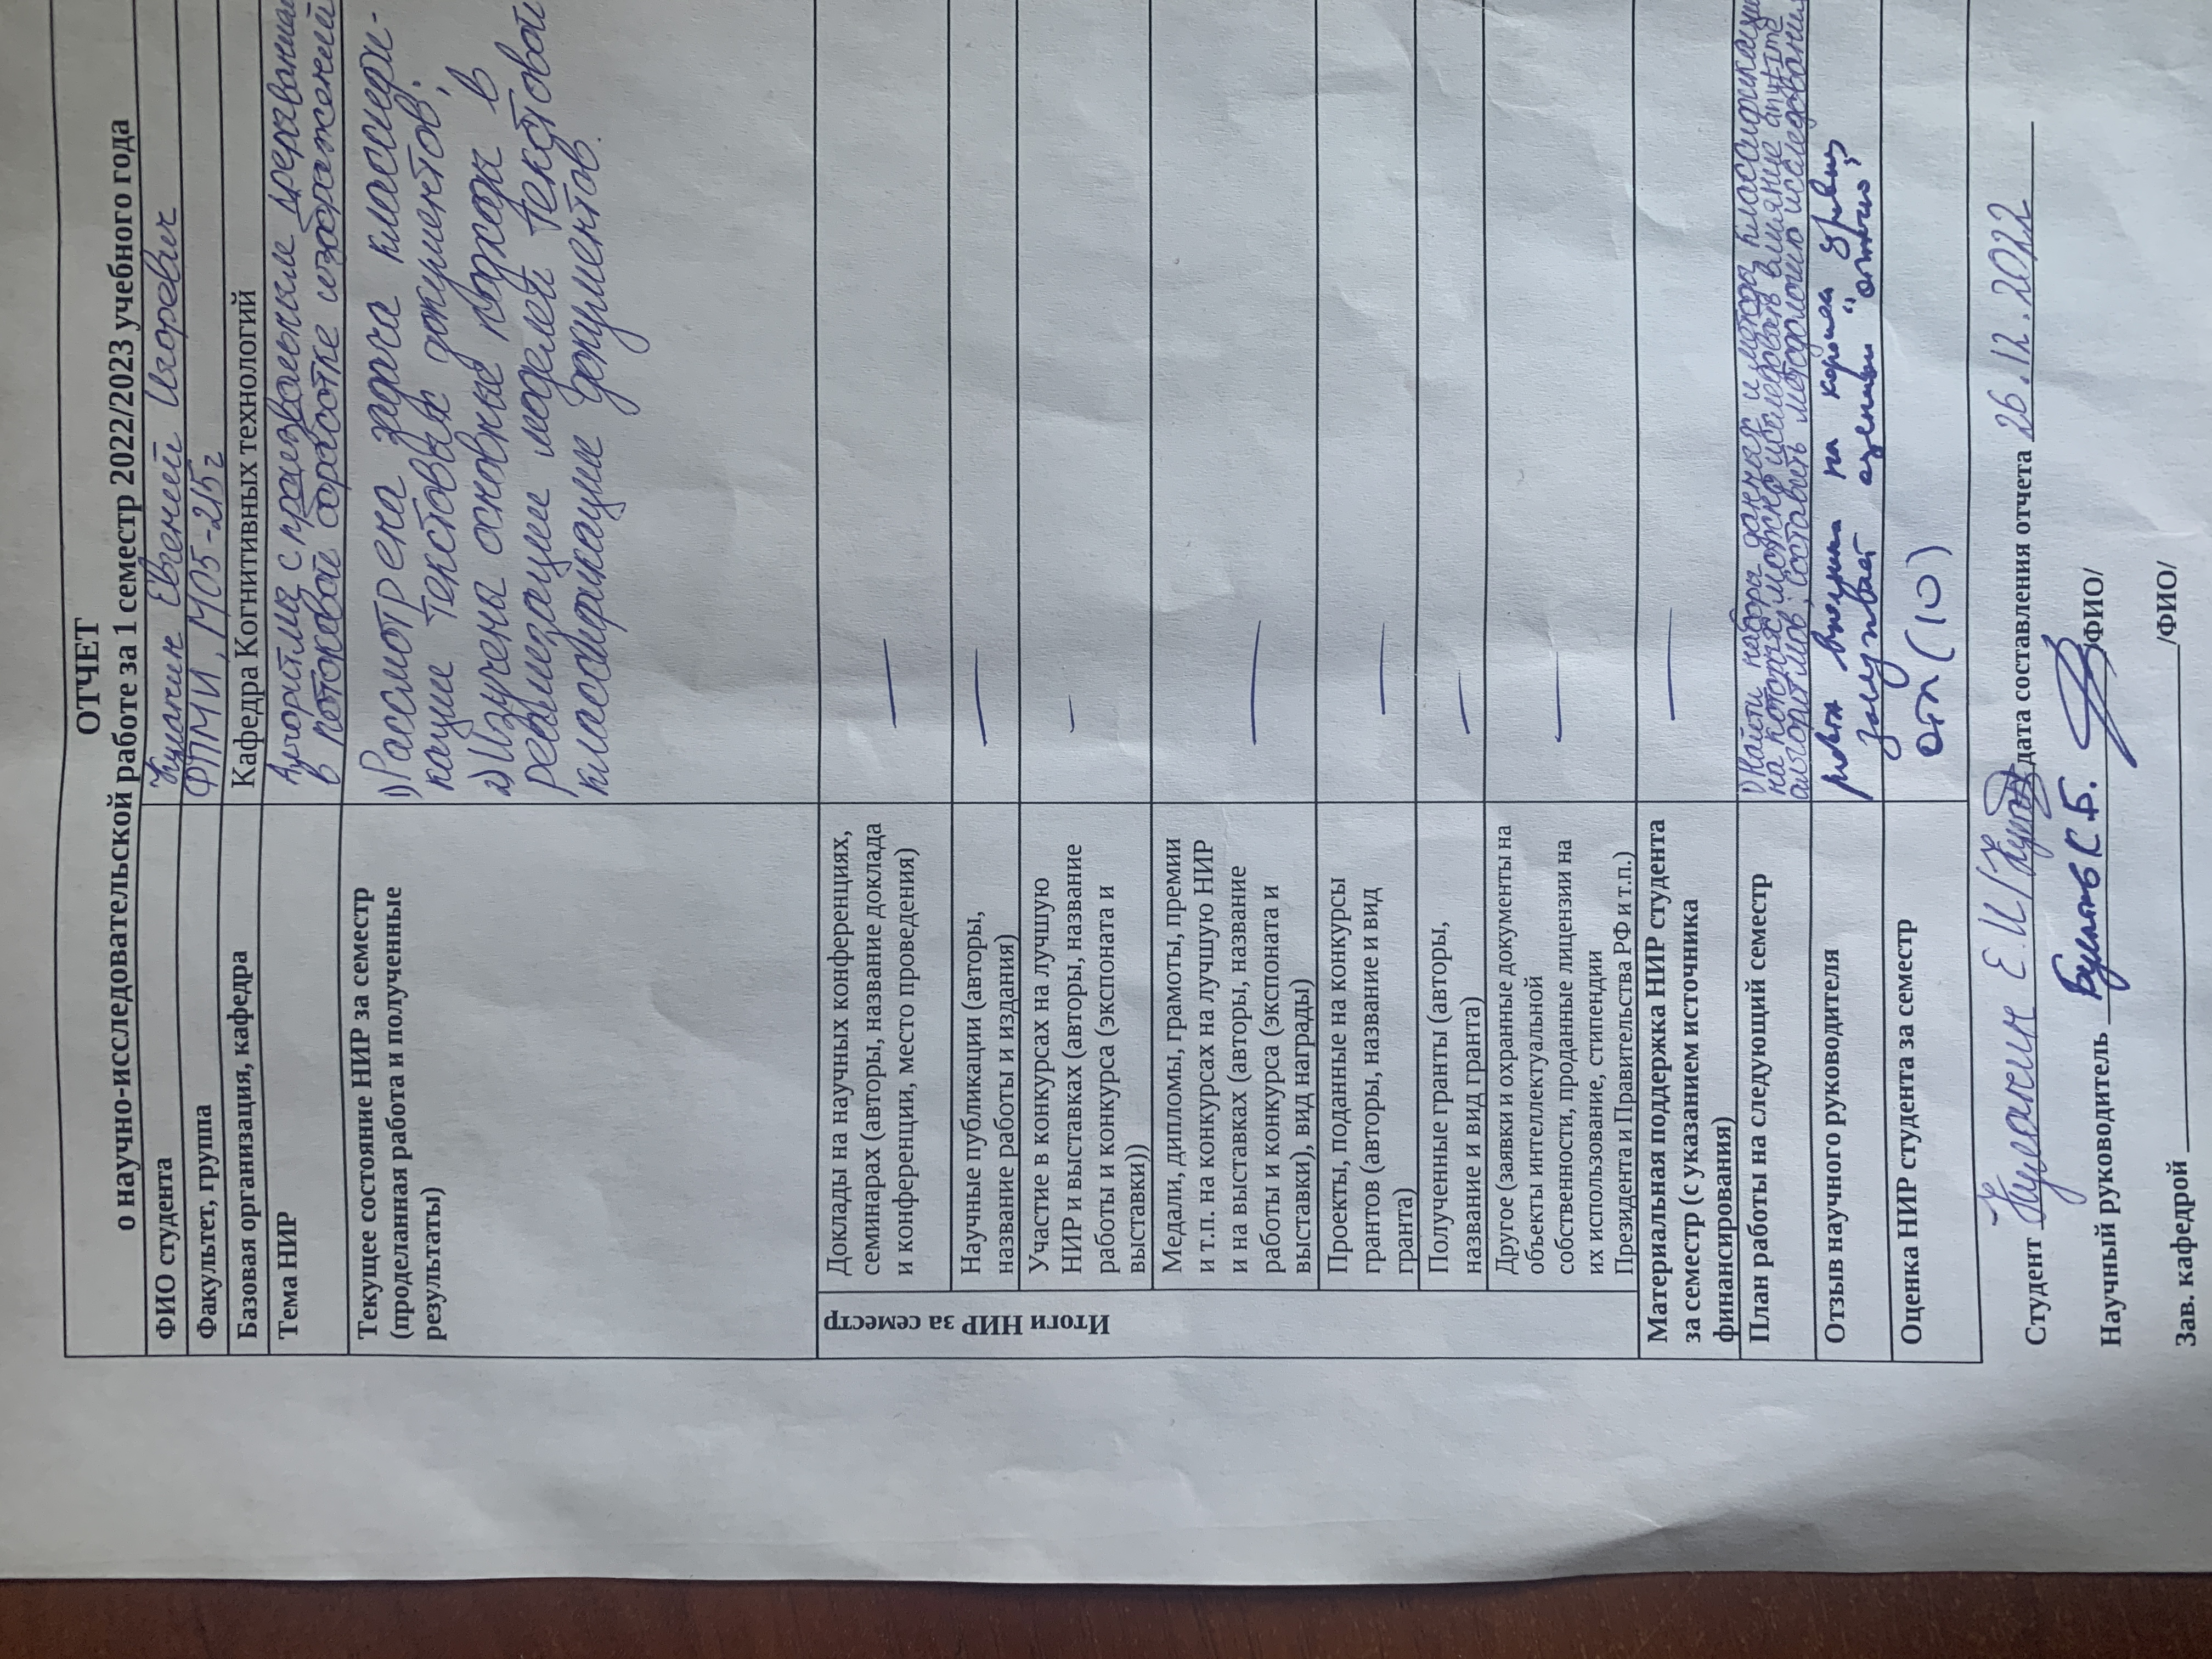 ОТЧЕТ
о научно-исследовательской работе за 1 семестр 2022/2023 учебного года
ФИО студента
Кулакин Евгений Игоревич
Факультет, группа
ФПМИ, М05-215г
Базовая организация, кафедра
Кафедра Когнитивных технологий
Тема НИР
Алгоритмы с произвольным прерыванием
в потоковой обработке изображений
Текущее состояние НИР за семестр
(проделанная работа и полученные
результаты)
1) Рассмотрена задача классифи-
кации текстовых документов;
2) Изучены основные подходы в
реализации моделей текстовой
классификации документов.
Итоги НИР за семестр
Доклады на научных конференциях,
семинарах (авторы, название доклада
и конференции, место проведения)
—
Научные публикации (авторы,
название работы и издания)
—
Участие в конкурсах на лучшую
НИР и выставках (авторы, название
работы и конкурса (экспоната и
выставки))
—
Медали, дипломы, грамоты, премии
и т.п. на конкурсах на лучшую НИР
и на выставках (авторы, название
работы и конкурса (экспоната и
выставки), вид награды)
—
Проекты, поданные на конкурсы
грантов (авторы, название и вид
гранта)
—
Полученные гранты (авторы,
название и вид гранта)
—
Другое (заявки и охранные документы на
объекты интеллектуальной
собственности, проданные лицензии на
их использование, стипендии
Президента и Правительства РФ и т.п.)
—
Материальная поддержка НИР студента
за семестр (с указанием источника
финансирования)
—
План работы на следующий семестр
1) Найти наборы данных и методы классификации
на которых можно исследовать влияние anytime
алгоритмов; составить методологию исследования
Отзыв научного руководителя
работа выполнена на хорошем уровне
заслуживает оценки "отлично"
Оценка НИР студента за семестр
отл (10)
Студент Кулакин Е.И/ дата составления отчета 26.12.2022
Научный руководитель Булатов К.Б. /ФИО/
Зав. кафедрой /ФИО/